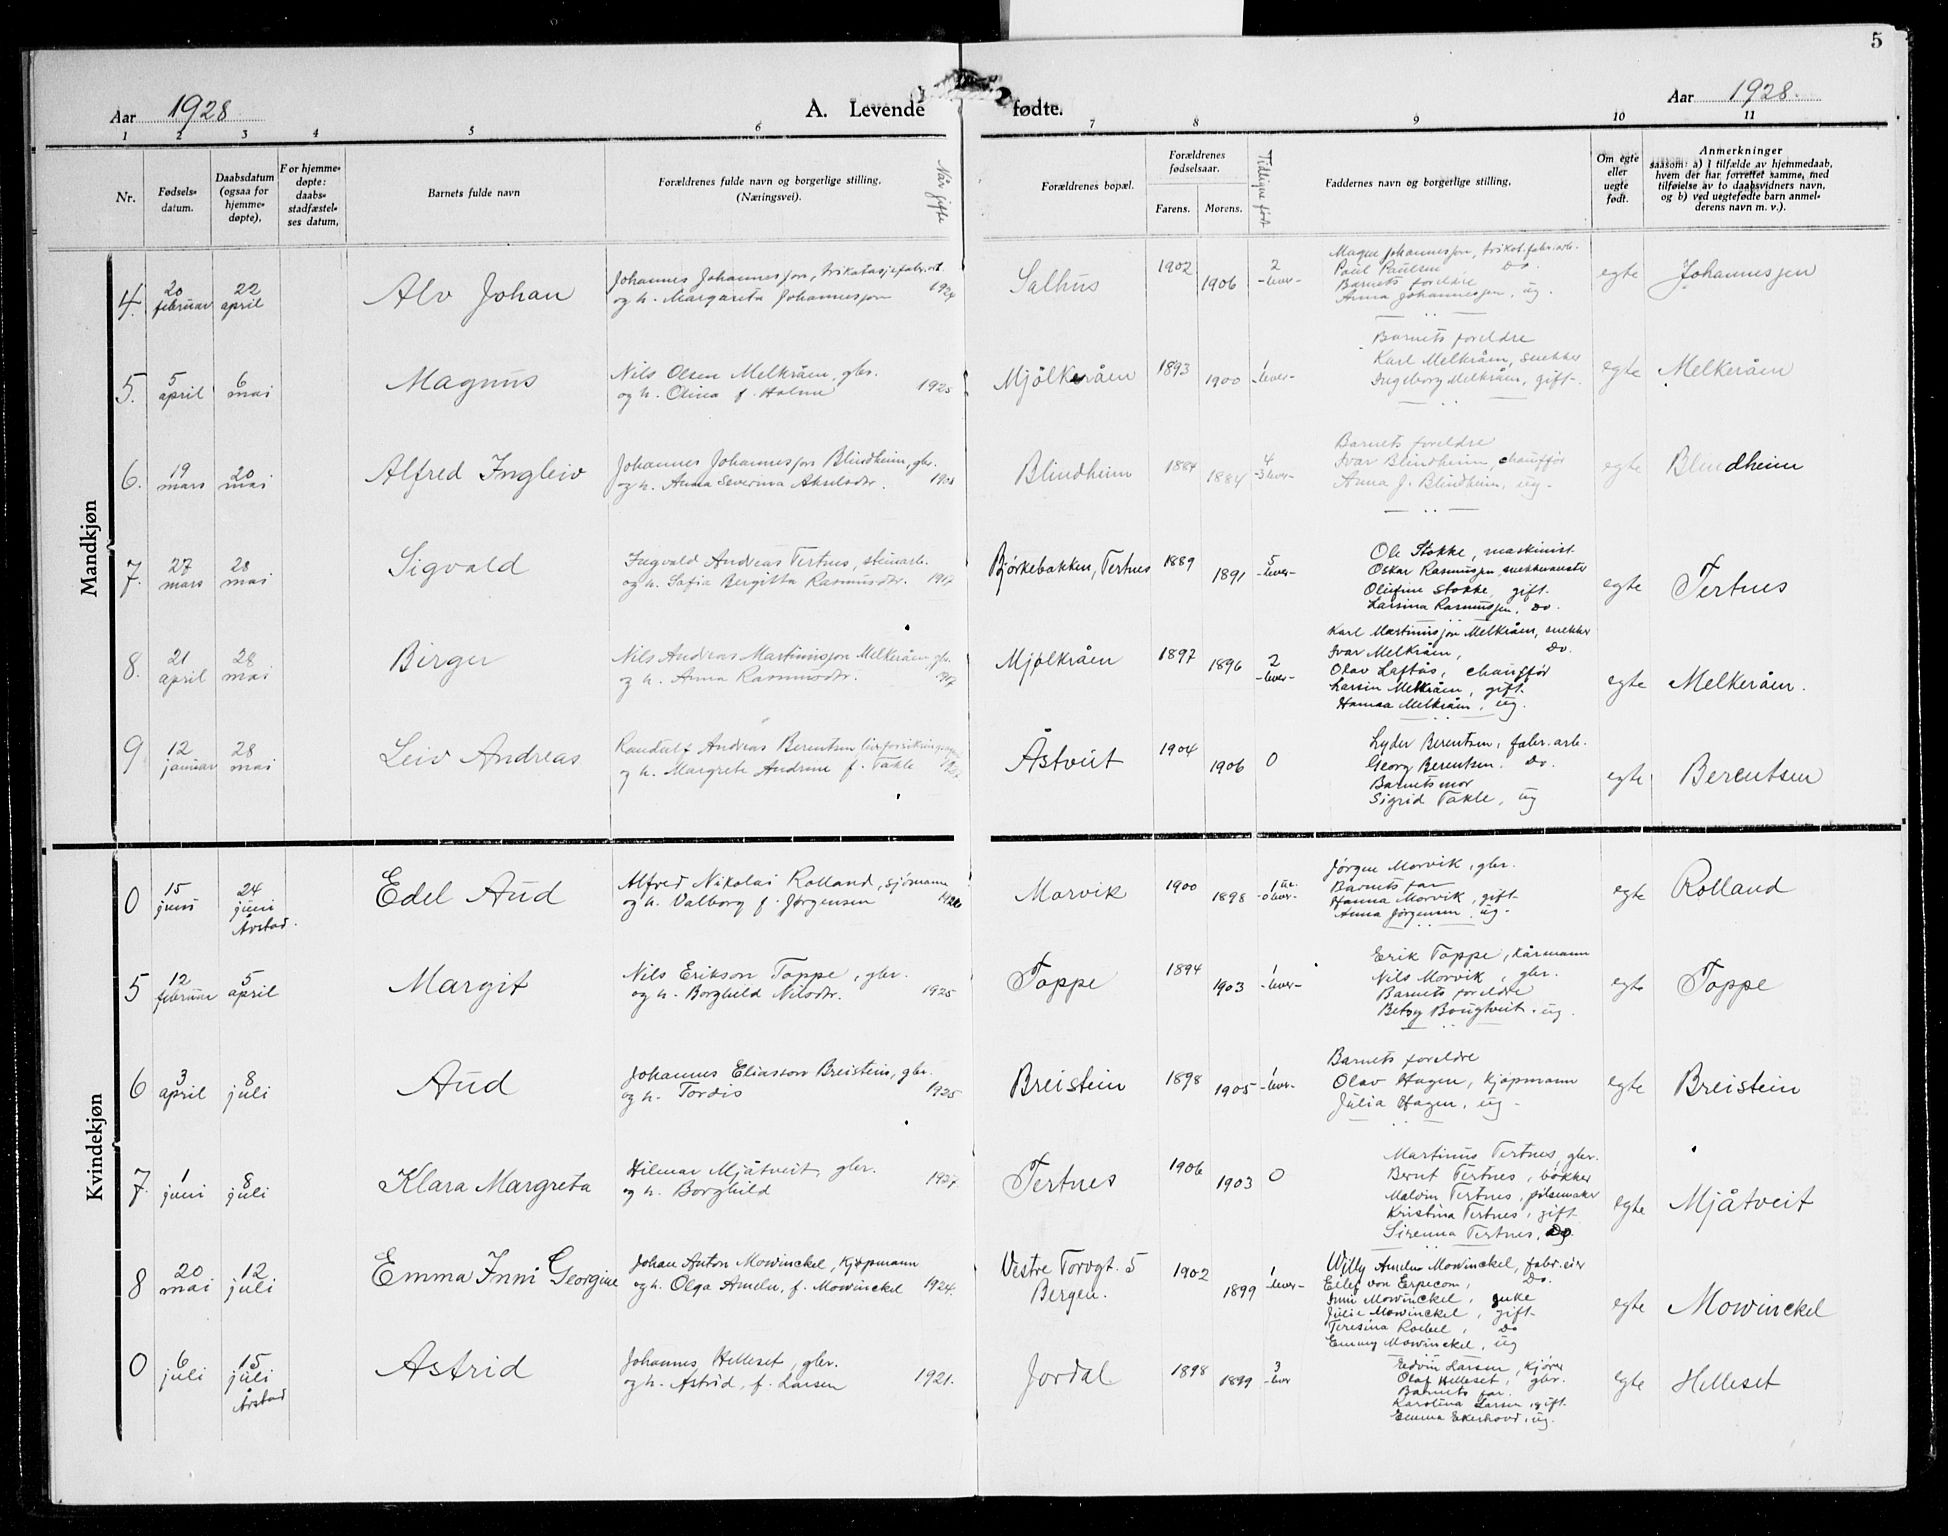 5
Aar 1928 A. Levende fødte. Aar 1928
1 2 3 4 5 6 7 8 9 10 11
Nr.
Fødsels-
datum.
Daabsdatum
(ogsaa for
hjemme-
døpte),
For hjemme-
døpte:
daabs-
stadfæstel-
ses datum,
Barnets fulde navn
Forældrenes fulde navn og borgerlige stilling,
(Næringsvei).
Når gifte
Forældrenes bopæl.
Forældrenes
fødselsaar.
Farens. Morens.
Tidligere født
Faddernes navn og borgerlige stilling,
Om egte
eller
uegte
født.
Anmerkninger
saasom: a) I tilfælde av hjemmedaab,
hvem der har forrettet samme, med
tilføielse av to daabsvidners navn,
og b) ved uegtefødte barn anmel-
derens navn m. v.).
Mandkjøn
4.
20
februar
22
april
Alv Johan
Johannes Johannessen, trikotasjefabr.arb.
og h. Margareta Johannessen
1924
Salhus
1902
1906
2
- lever -
Magne Johannessen, trikot.fabr.arb.
Paul Paulsen Do.
Barnets foreldre
Anna Johannessen, ug.
egte
Johannessen
5.
5
april
6
mai
Magnus
Nils Olsen Melkråen, gbr.
og h. Olina f. Holme
1925
Mjölkeråen
1893
1900
1
- lever -
Barnets foreldre
Karl Melkråen, snekker
Ingeborg Melkråen, gift.
egte
Melkeråen
6.
19
mars
20
mai
Alfred Ingleiv
Johannes Johannessen Blindheim, gbr.
og h. Anna Severina Akselsdtr.
1908
Blindheim
1884
1884
4
- 3 lever -
Barnets foreldre
Ivar Blindheim, chaufför
Anna J. Blindheim, ug.
egte
Blindheim
7.
27
mars
28
mai
Sigvald
Ingvald Andreas Tertnes, steinarb.
og h. Sofia Bergitta Rasmusdtr.
1917
Bjørkebakken, Tertnes
1889
1891
5
- lever -
Ole Stokke, maskinist
Oskar Rasmussen, snekkermester
Olufine Stokke, gift.
Larsina Rasmussen, Do.
egte
Tertnes
8.
21
april
28
mai
Birger
Nils Andreas Martinussen Melkeråen, gbr.
og h. Anna Rasmusdtr.
1917
Mjølkråen
1897
1896
2
- lever -
Karl Martinussen Melkråen, snekker
Ivar Melkråen, Do.
Olav Løftås, chauffør
Larsin Melkråen, gift.
Hanna Melkråen, ug.
egte
Melkeråen.
9
12
januar
28
mai
Leiv Andreas
Randulf Andreas Berentsen
og h. Margrete Andrine f. Takle
Åstveit
1904
1906
0
Lyder Berentsen, fabr. arb.
Georg Berentsen. Do.
Barnets mor
Sigrid Takle, ug
egte
Berentsen
Kvindekjøn
0
15
juni
24
juni
Årstad.
Edel Aud
Alfred Nikolai Rolland, sjömann
og h. Valborg f. Jørgensen
1926
Morvik
1900
1898
Jørgen Morvik, gbr.
Barnets far
Hanna Morvik, gift
Anna Jørgensen, ug.
egte
Rolland
5
12
februar
5
april
Margit
Nils Erikson Toppe, gbr.
og h. Borghild Nilsdtr.
1925
Toppe
1894
1903
1
- lever -
Erik Toppe, kårmann
Nils Morvik, gbr.
Barnets foreldre
Betsy Bougtveit, ug.
egte
Toppe
6
3
april
8
juli
Aud
Johannes Eliasson Breistein, gbr.
og h. Tordis
1925
Breistein
1898
1905
1
- lever -
Barnets foreldre
Olav Hagen, kjøpmann
Julia Hagen, ug.
egte
Breistein
7.
1
juni
8
juli
Klara Margreta
Hilmar Mjåtveit, gbr.
og h. Borghild
1927
Tertnes
1906
1903
0
Martinus Tertnes, gbr.
Bernt Tertnes, bøkker
Malvin Tertnes, pølsemaker
Kristina Tertnes, gift
Sirenna Tertnes, Do.
egte
Mjåtveit
8
20
mai
12
juli
Emma Inni Georgine
Johan Anton Mowinckel, kjøpmann
og h. Olga Ameln, f. Mowinckel
1924.
Vestre Torvgt. 5
Bergen.
1902
1899
1
- lever -
Willy Amelns Mowinckel, fabr.eier
Eiley von Erpecom, Do.
Inni Mowinckel, enke
Julie Mowinckel, gift
Teresina Roebel, Do
Emmy Mowinckel, ug
egte
Mowinckel
0
6
juli
15
juli
Årstad
Astrid
Johannes Helleset, gbr.
og h. Astrid, f. Larsen
1921.
Jordal
1898
1899
3
- lever
Edvin Larsen, kjører
Olaf Helleset, gbr.
Barnets far.
Karolina Larsen, gift.
Emma Ekerhovd, ug.
egte
Helleset